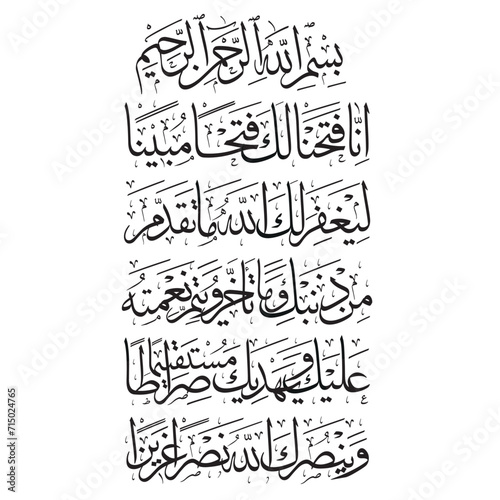 بِسْمِ اللَّهِ الرَّحْمَٰنِ الرَّحِيمِ
إِنَّا فَتَحْنَا لَكَ فَتْحًا مُبِينًا
لِيَغْفِرَ لَكَ اللَّهُ مَا تَقَدَّمَ
مِنْ ذَنْبِكَ وَمَا تَأَخَّرَ وَيُتِمَّ نِعْمَتَهُ
عَلَيْكَ وَيَهْدِيَكَ صِرَاطًا مُسْتَقِيمًا
وَيَنْصُرَكَ اللَّهُ نَصْرًا عَزِيزًا
Adobe Stock | #715024765